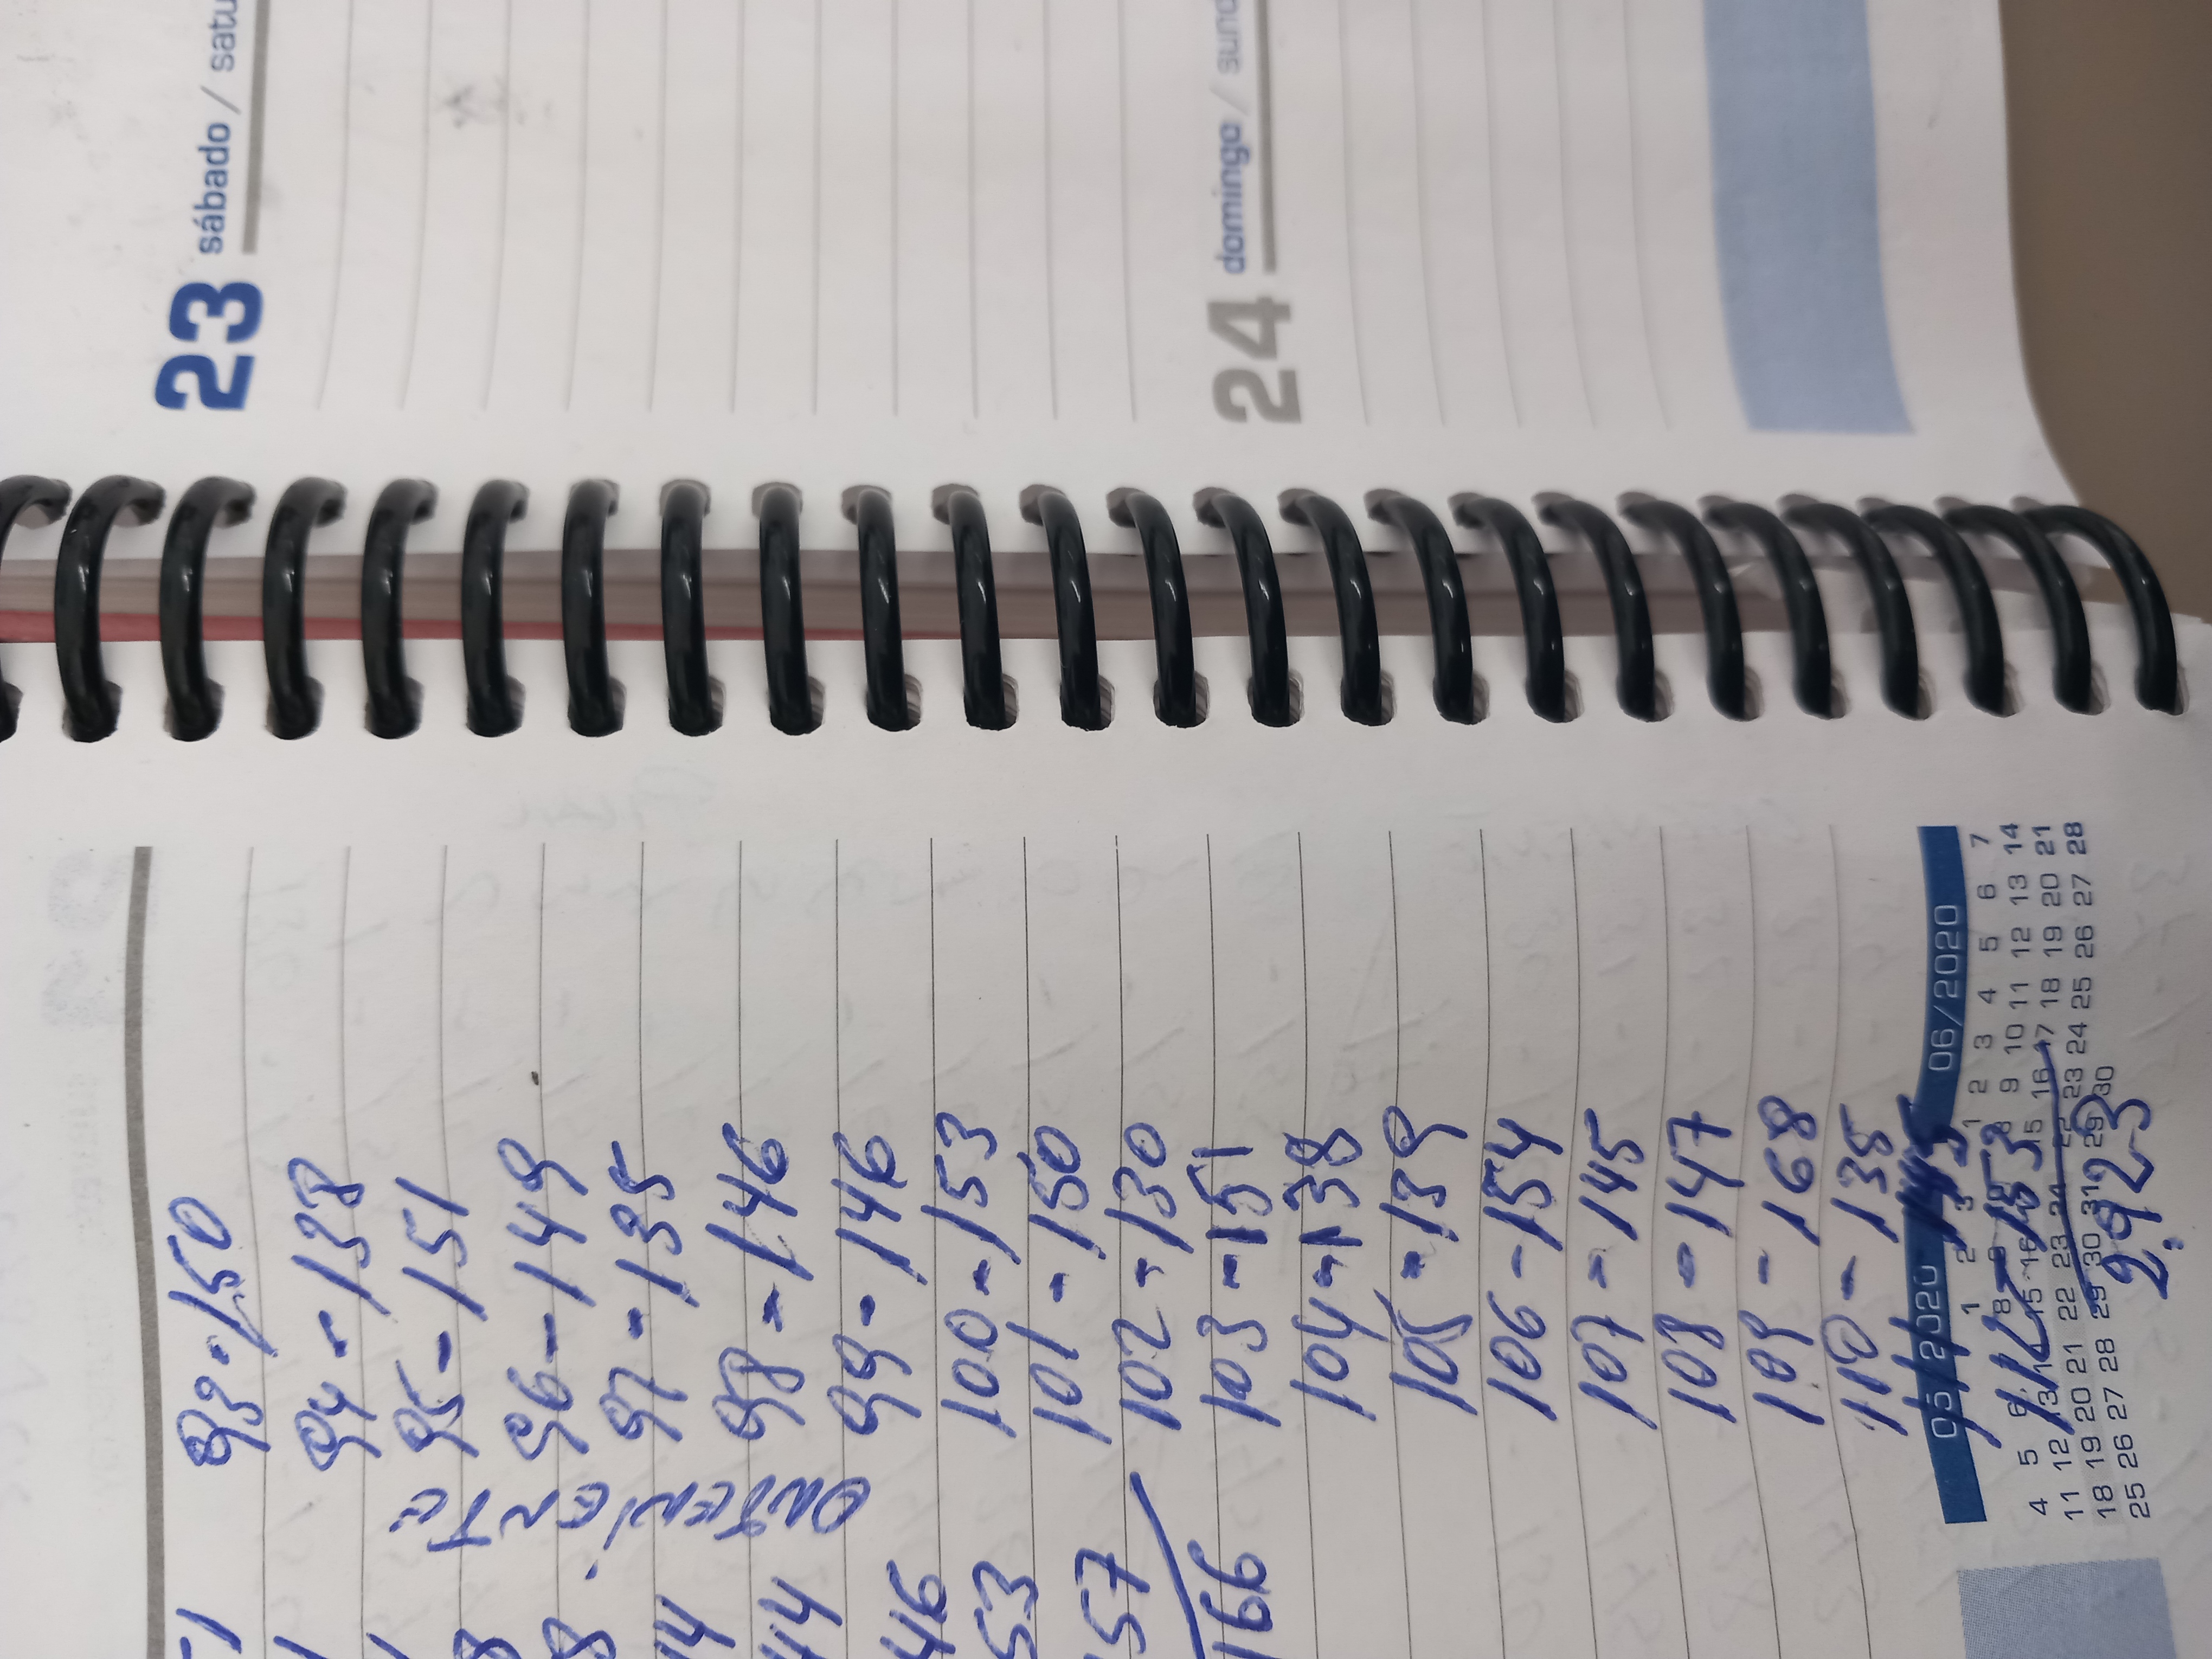 46
53
57
166
93-150
94-138
95-151
96-149
97-135
98-146
99-146
100-153
101-150
102-130
103-151
104-138
105-139
106-154
107-145
108-147
109-168
110-135
111-145
112-153
2.923
05/2020 06/2020
1 2 3 1 2 3 4 5 6 7
4 5 6 8 9 8 9 10 11 12 13 14
11 12 13 15 16 15 16 17 18 19 20 21
18 19 20 21 22 23 24 22 23 24 25 26 27 28
25 26 27 28 29 30 31 29 30
23 sábado / satu
24 domingo / sund